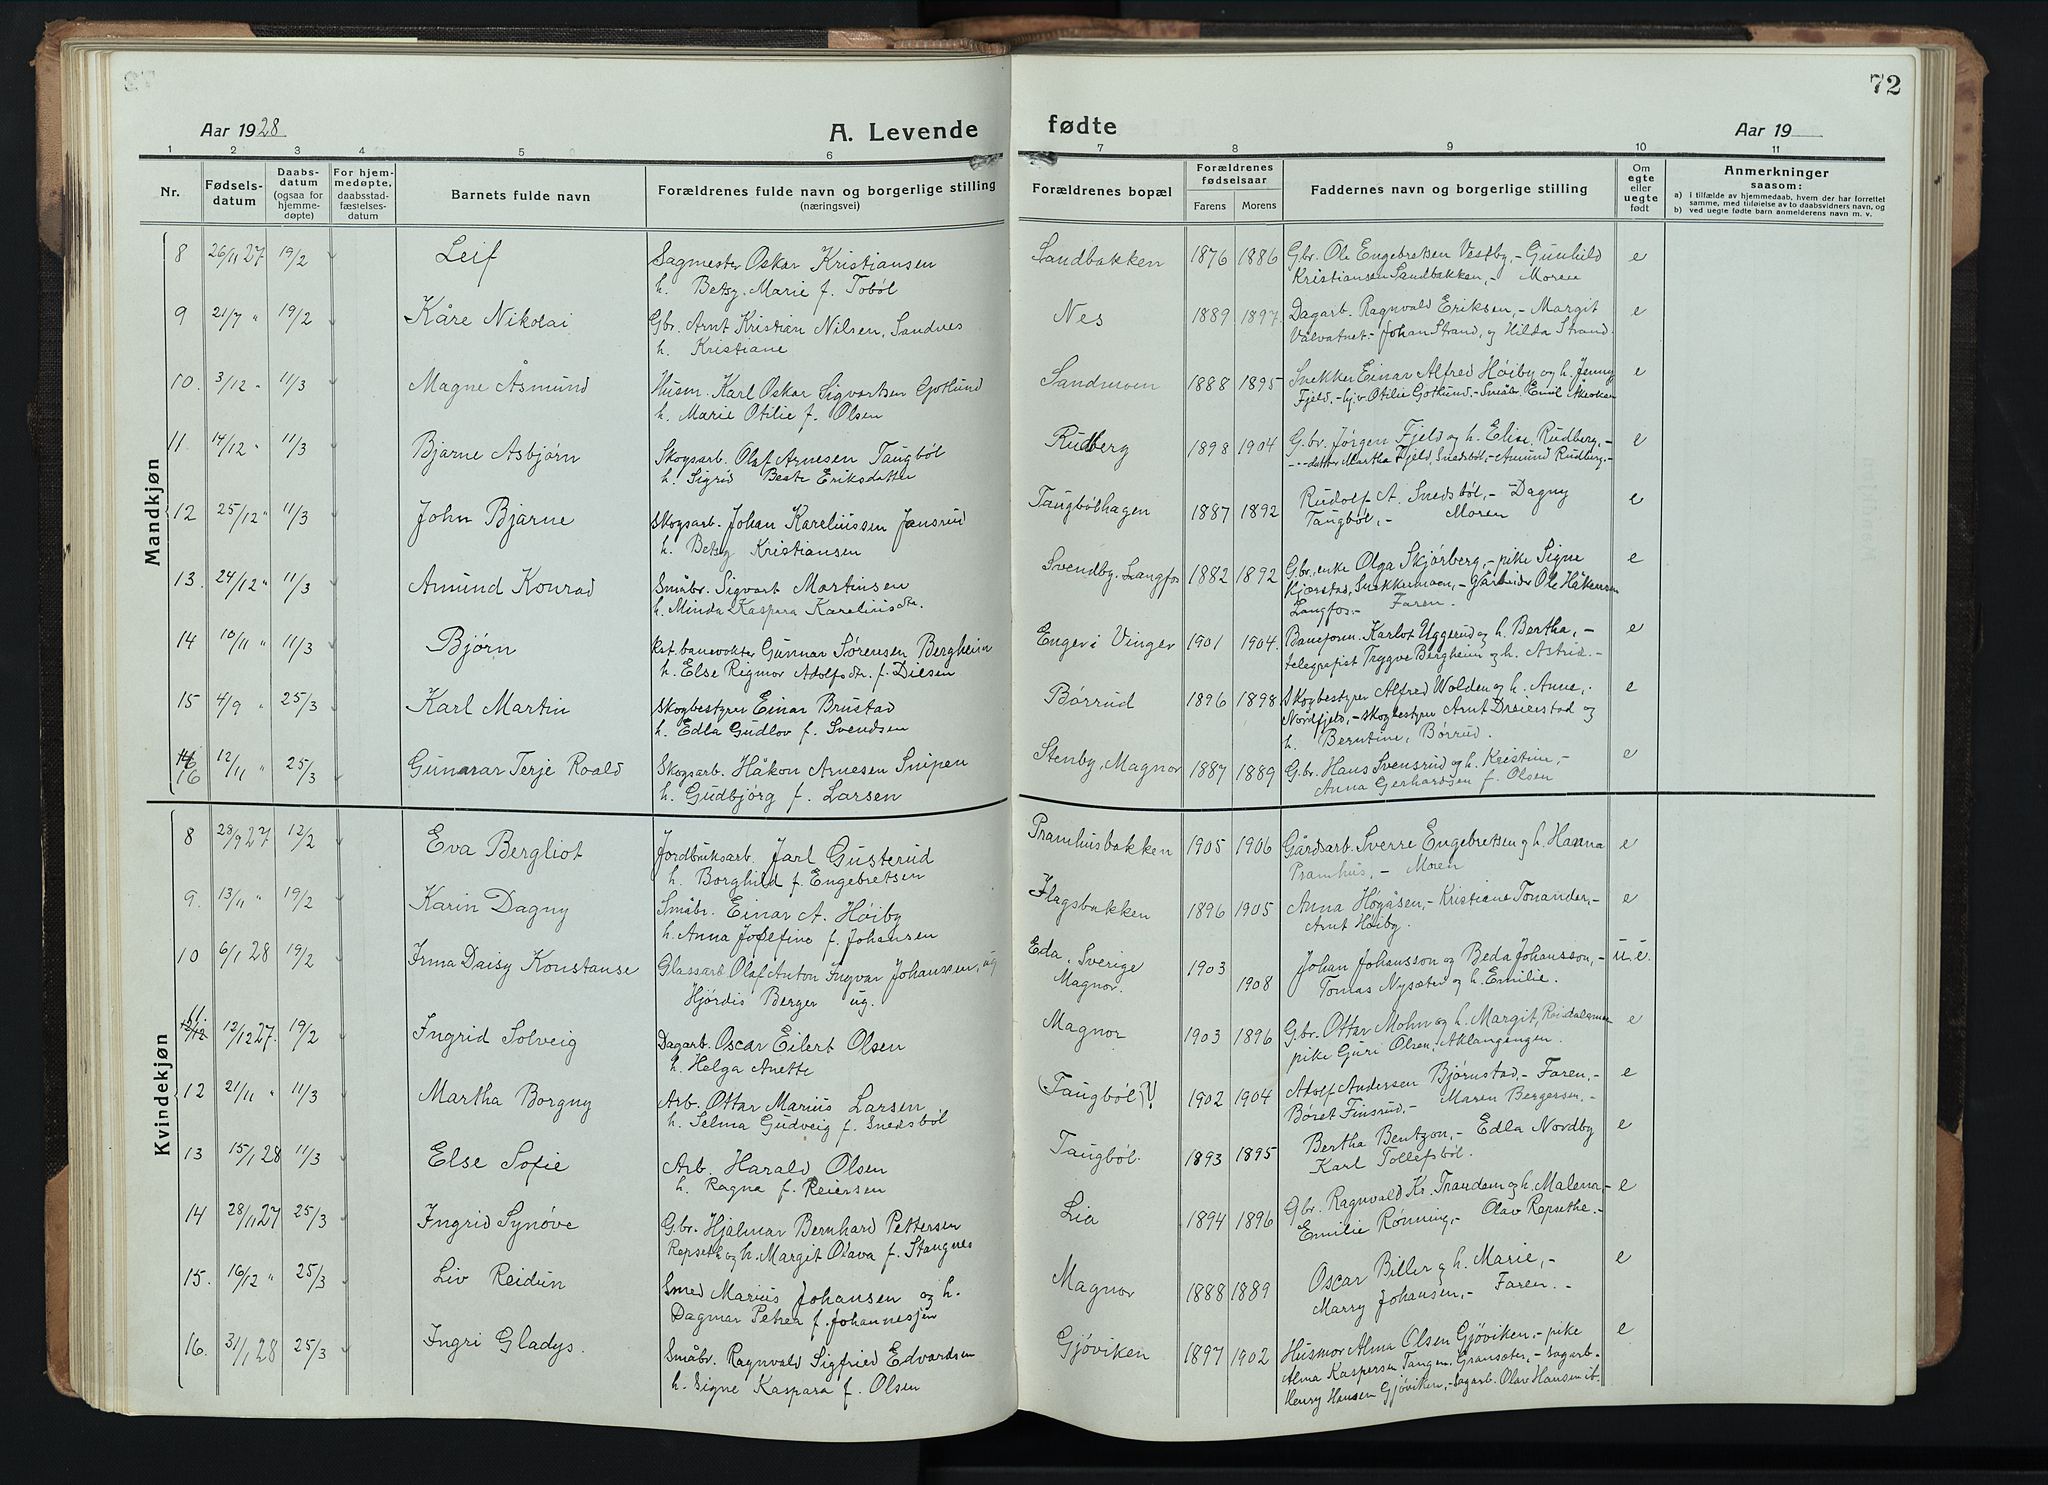 72
Aar 1928 A. Levende fødte Aar 19
1 2 3 4 5 6 7 8 9 10 11
Nr. Fødsels-datum Daabs-datum (ogsaa for hjemme-døpte) For hjem-medøpte, daabsstad-fæstelses-datum Barnets fulde navn Forældrenes fulde navn og borgerlige stilling (næringsvei) Forældrenes bopæl Forældrenes fødselsaar Farens Morens Faddernes navn og borgerlige stilling Om egte eller uegte født Anmerkninger saasom:
a) i tilfælde av hjemmedaab, hvem der har forrettet samme, med tilføielse av to daabsvidners navn, og
b) ved uegte fødte barn anmelderens navn m. v.
Mandkjøn
8 26/11 27 19/2 Leif Sagmester Oskar Kristiansen Sandbakken 1876 1886 Gbr. Ole Engebretsen Vestby, - Gunhild e
h. Betsy Marie f. Tobøl Kristiansen Sandbakken, - Moren
9 21/7 " 19/2 Kåre Nikolai Gbr. Arnt Kristian Nilsen, Sandnes Nes 1889 1897 Dagarb. Ragnvald Eriksen, - Margit e
h. Kristiane Valvatnet - Johan Strand, og Hilda Strand.
10. 3/12 " 11/3 Magne Åsmund Husm. Karl Oskar Sigvartsen Gotlund Sandmoen 1888 1895 Snekker Einar Alfred Høiby og h. Jenny e
h. Marie Otilie f. Olsen Fjeld. - hj.v Otilie Gotlund. - Småbr. Emil
11. 14/12 " 11/3 Bjarne Asbjørn Skogsarb. Olaf Arnesen Taugbøl Rudberg 1898 1904 G.br. Jørgen Fjeld og h. Elise, Rudberg, - e
h. Sigrid Beate Eriksdatter - datter Martha Fjeld, Snedsbøl, - Amund Rudberg, -
12 25/12 " 11/3 John Bjarne Skogsarb. Johan Kareliussen Jansrud Taugbølhagen 1887 1892 Rudolf A. Snedsbøl, - Dagny e
h. Betsy Kristiansen Taugbøl, - Moren
13. 24/12 " 11/3 Amund Konrad Småbr. Sigvart Martinsen Svendby, Langfos 1882 1892 Gbr. enke Olga Skjørberg, - pike Signe e
h. Minda Kaspara Kareliusdtr. Kjærstad, Snekkermoen, - gårdeier Ole Håkensen
Langfos. - Faren.
14 10/11 " 11/3 Bjørn Rst. banevokter Gunnar Sørensen Bergheim Enger i Vinger 1901 1904 Baneform. Karlot Uggerud og h. Bertha, - e
h. Else Rigmor Adolfsdtr. f. Dilsen telegrafist Trygve Bergheim og h. Astrid. -
15 4/9 " 25/3 Karl Martin Skogbestyrer Einar Brustad Børrud 1896 1898 Skogbestyrer Alfred Wolden og h. Anne, e
h. Edla Gudlov f. Svendsen Nordfjeld, - skogbestyrer Arnt Dreierstad og
h. Berntine, Børrud.
16 12/11 " 25/3 Gunnar Terje Roald Skogsarb. Håkon Arnesen Snipen Stenby, Magnor 1887 1889 G.br. Hans Svensrud og h. Kristine, - e
h. Gudbjörg f. Larsen Anna Gerhardsen f. Olsen
Kvindekjøn
8 28/9 27 12/2 Eva Bergliot Jordbruksarb. Jarl Gusterud Pramhusbakken 1905 1906 Gårdsarb. Sverre Engebretsen og h. Hanna e
h. Borghild f. Engebretsen Pramhus, - Moren
9. 13/11 " 19/2 Karin Dagny Småbr. Einar A. Høiby Flagsbakken 1896 1905 Anna Høgåsen, - Kristiane Tonander, - e
h. Anna Josefine f. Johansen Arnt Høiby.
10 6/1 28 19/2 Irma Daisy Konstanse Glassarb. Olaf Anton Ingvar Johanssen, ug Eda, Sverige 1903 Johan Johansson og Beda Johansson, - u.e.
Hjørdis Berger ug. Magnor. 1908 Tomas Nysæter og h. Emilie.
11. 12/12 27. 19/2 Ingrid Solveig Dagarb. Oscar Eilert Olsen Magnor 1903 1896 G.br. Ottar Mohn og h. Margit, e
h. Helga Anette pike Guri Olsen, Aklangengen.
12 21/11 " 11/3 Martha Borgny Arb. Ottar Marius Larsen (Taugbøl?) 1902 1904 Adolf Andersen Bjørnstad, - Faren, - e
h. Selma Gudveig f. Snedsbøl Børet Finsrud, - Maren Bergersen, -
13 15/1 28 11/3 Else Sofie Arb. Harald Olsen Taugbøl. 1893 1895 Bertha Bentzon, - Edla Nordby e
h. Ragna f. Reiersen Karl Tollefsbøl.
14 28/11 27 25/3 Ingrid Synøve Gbr. Hjalmar Bernhard Pettersen Lia 1894 1896 Gbr. Ragnvald Kr. Trandem og h. Malena, - e
Repseth og h. Margit Olava f. Stangnes Emilie Rønning, - Olav Repsethe. -
15. 16/12 " 25/3 Liv Reidun Smed Marius Johansen og h. Magnor 1888 1889 Oscar Biller og h. Marie, - e
Dagmar Petrea f. Johannesjen Marry Johansen, - Faren. -
16. 31/1 28 25/3 Ingri Gladys. Småbr. Ragnvald Sigfried Edvardsen Gjøviken 1897 1902 Husmor Alma Olsen Gjøviken. - pike e
h. Signe Kaspara f. Olsen Alma Kaspersen Tangen, Gransæter, - sagarb.
Henry Hansen Gjøviken, - sagarb. Olav Hansen ib.